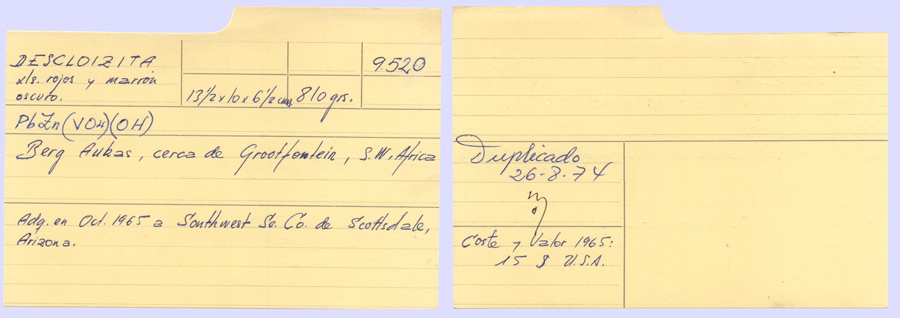 DESCLOIZITA
xls. rojos y marrón
oscuro.
13 1/2 x 10 x 6 1/2 cms
810 grs.
9520
PbZn(VO4)(OH)
Berg Aukas, cerca de Grootfontein, S.W. Africa
Adq. en Oct. 1965 a Southwest Sc. Co. de Scottsdale,
Arizona.
Duplicado
26-8-74
Coste y Valor 1965:
15 $ U.S.A.